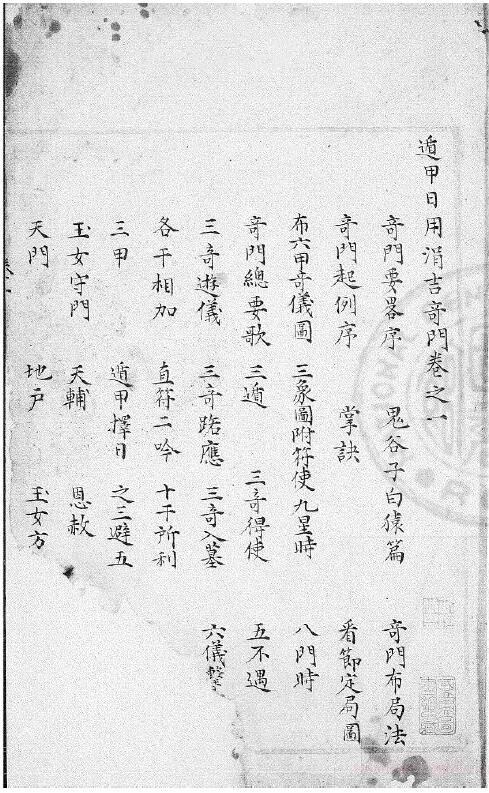 遁甲日用涓吉奇門卷之一
奇門要畧序 鬼谷子白猿篇 奇門布局法
奇門起例序 掌訣 看節定局圖
布六甲奇儀圖 三象圖附符使九星時 八門時
奇門總要歌 三遁 三奇得使 五不遇
三奇遊儀 三奇路應 三奇入墓 六儀擊
各干相加 直符二吟 十干所利
三甲 遁甲擇日 之三避五
玉女守門 天輔 恩赦
天門 地户 玉女方